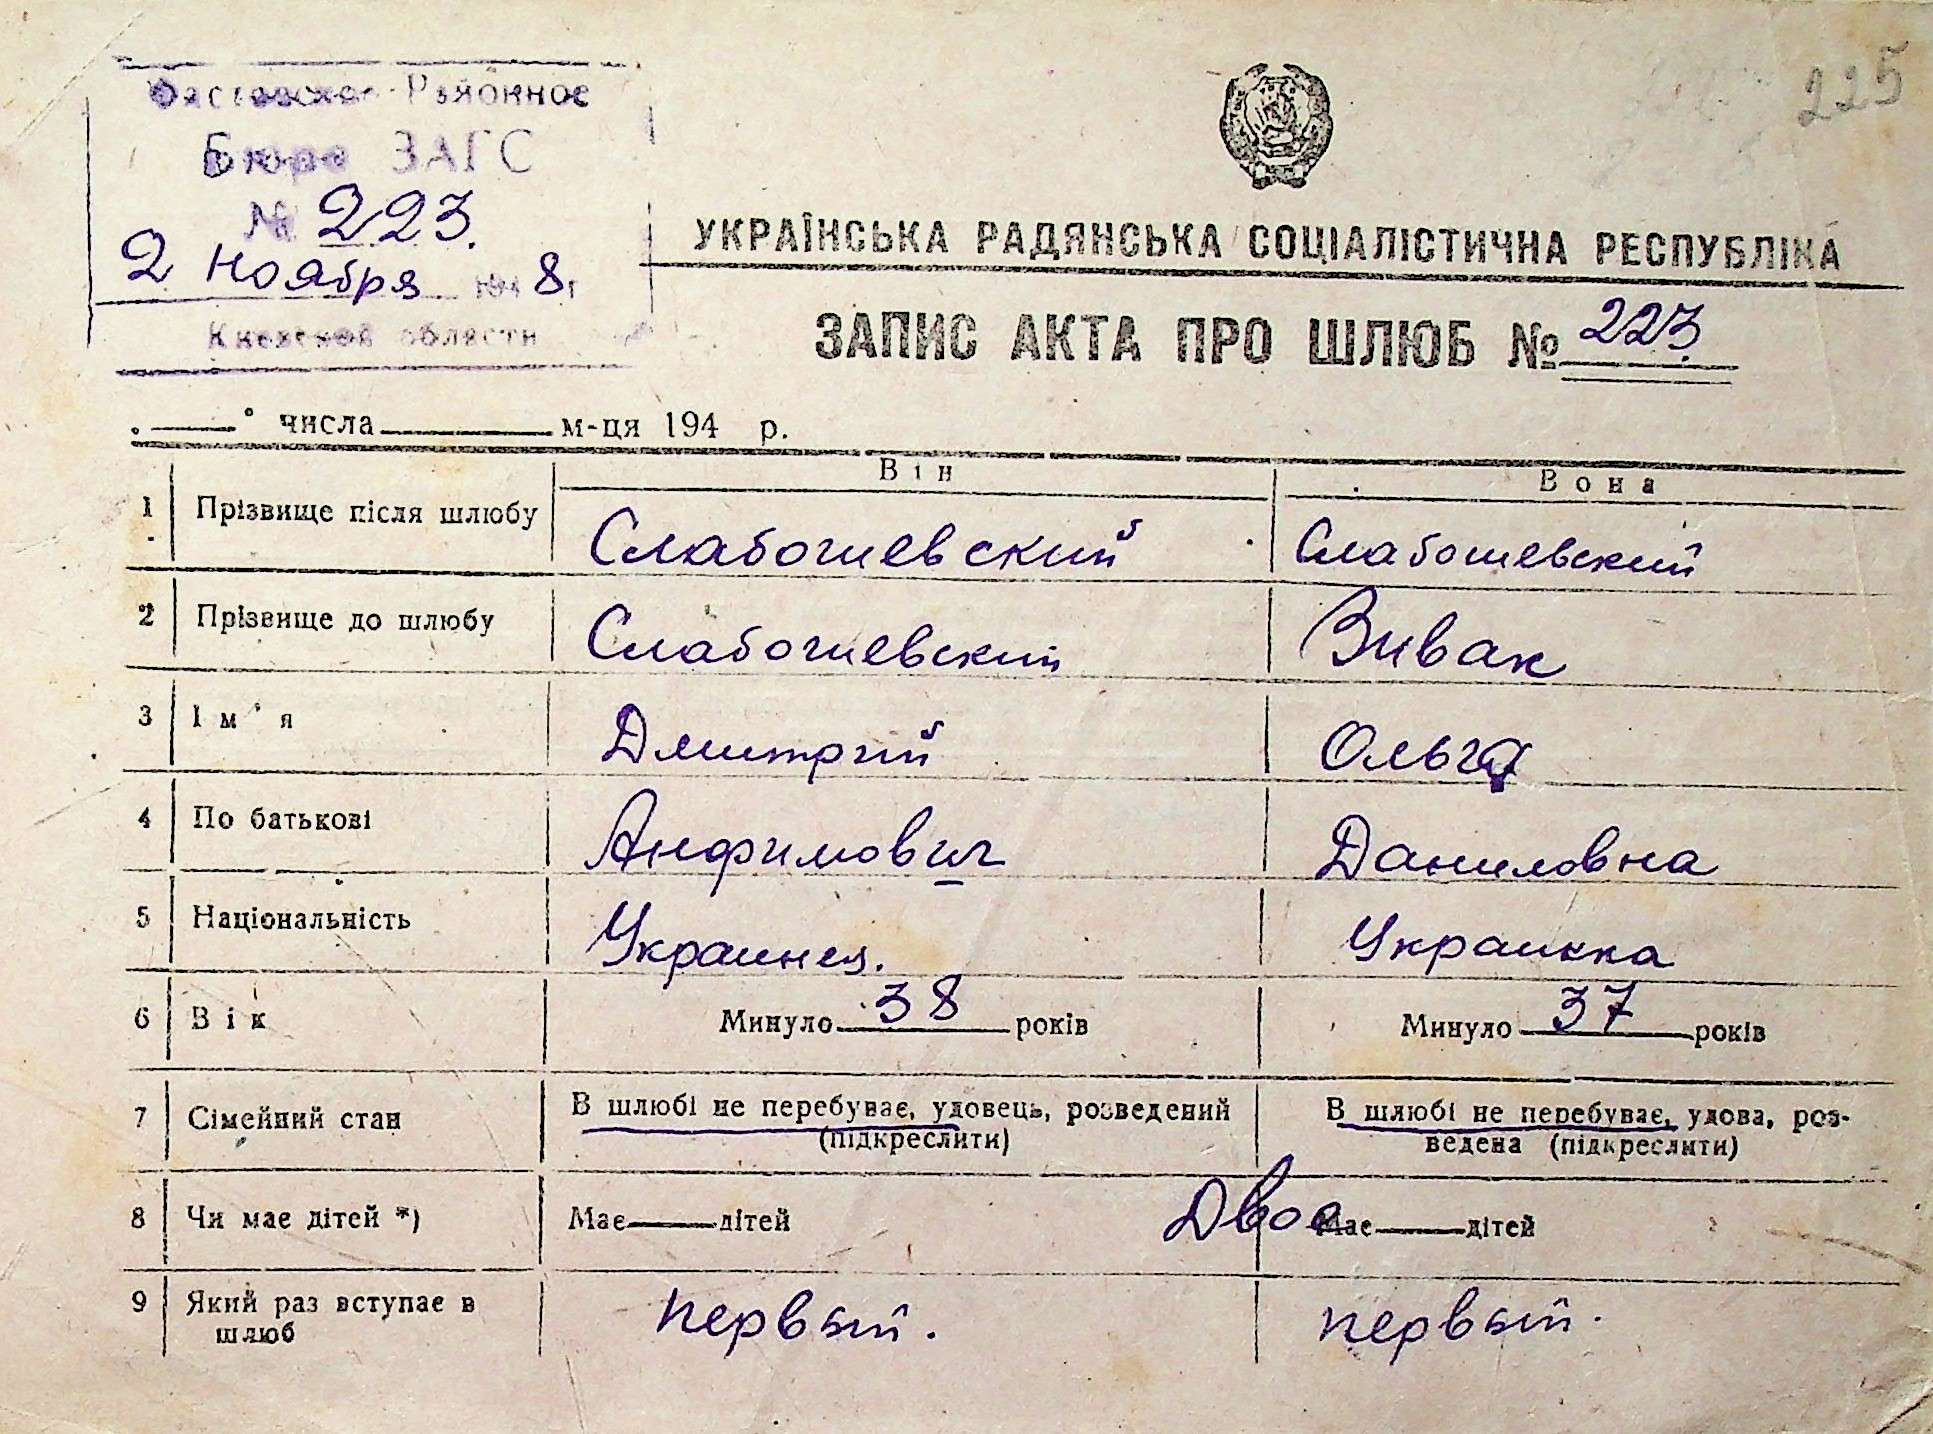 225
Фастовское Районное
Бюро ЗАГС
№ 223.
2 ноября 1948 г
Киевской области
УКРАЇНСЬКА РАДЯНСЬКА СОЦІАЛІСТИЧНА РЕСПУБЛІКА
ЗАПИС АКТА ПРО ШЛЮБ № 223
числа м-ця 194 р.
Він Вона
1 Прізвище після шлюбу Слабошевский Слабошевский
2 Прізвище до шлюбу Слабошевский Вивак
3 Ім'я Дмитрий Ольга
4 По батькові Анфимович Даниловна
5 Національність Украинец. Украинка
6 Вік Минуло 38 років Минуло 37 років
7 Сімейний стан В шлюбі не перебуває, удовець, розведений (підкреслити) В шлюбі не перебуває, удова, роз-
ведена (підкреслити)
8 Чи має дітей *) Має дітей Двое Має дітей
9 Який раз вступає в шлюб первый. первый.